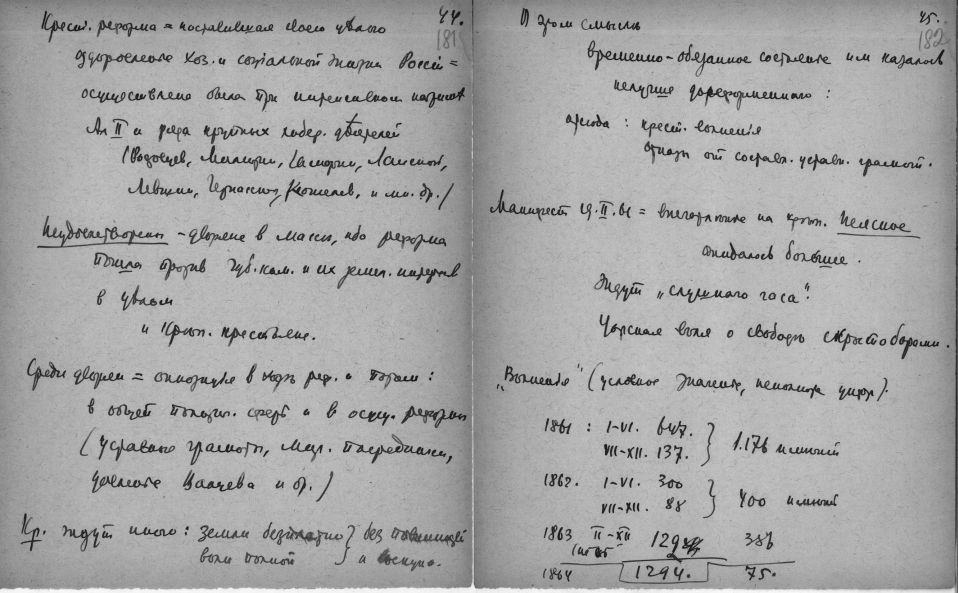 44.
181
Крест. реформа = поставившая своею целью
оздоровление хоз. и социальной жизни России =
осуществлена была при интенсивном
Ал II и ряда крупных либер. деятелей
(Милютин, Самарин, Ланской,
Левшин, Черкасский, Кошелев, и мн. др.)
Неудовлетворены - дворяне в массе, ибо реформа
пошла против губ. ком. и их земел. интересов
в целом
и крест.
Среди дворян = оппозиция в ходе реф. и потом:
в общей сфере и в осущ. реформы
(уставные грамоты, мир. посредники,
Валуева и др.)
Кр. ждут иного: земли безплатно } без повинностей
воли полной } и выкупа.
45.
182
В этом смысле
временно-обязанное состояние им казалось
не лучше дореформенного:
отсюда: крест. волнения
отказы от составл. уставн. грамот.
Манифест 19.II.61 = впечатление на крест. неясное
ожидалось большее.
Ждут „слушного часа".
Царская воля о свободе скрыта барами.
„Волнения" (условное значение, неполнота цифр).
1861 : I-VI. 647. }
VII-XII. 137. } 1.176 имений
1862. I-VI. 300 }
VII-XII. 88 } 400 имений
1863 II-XII 386
1864 1294. 75.